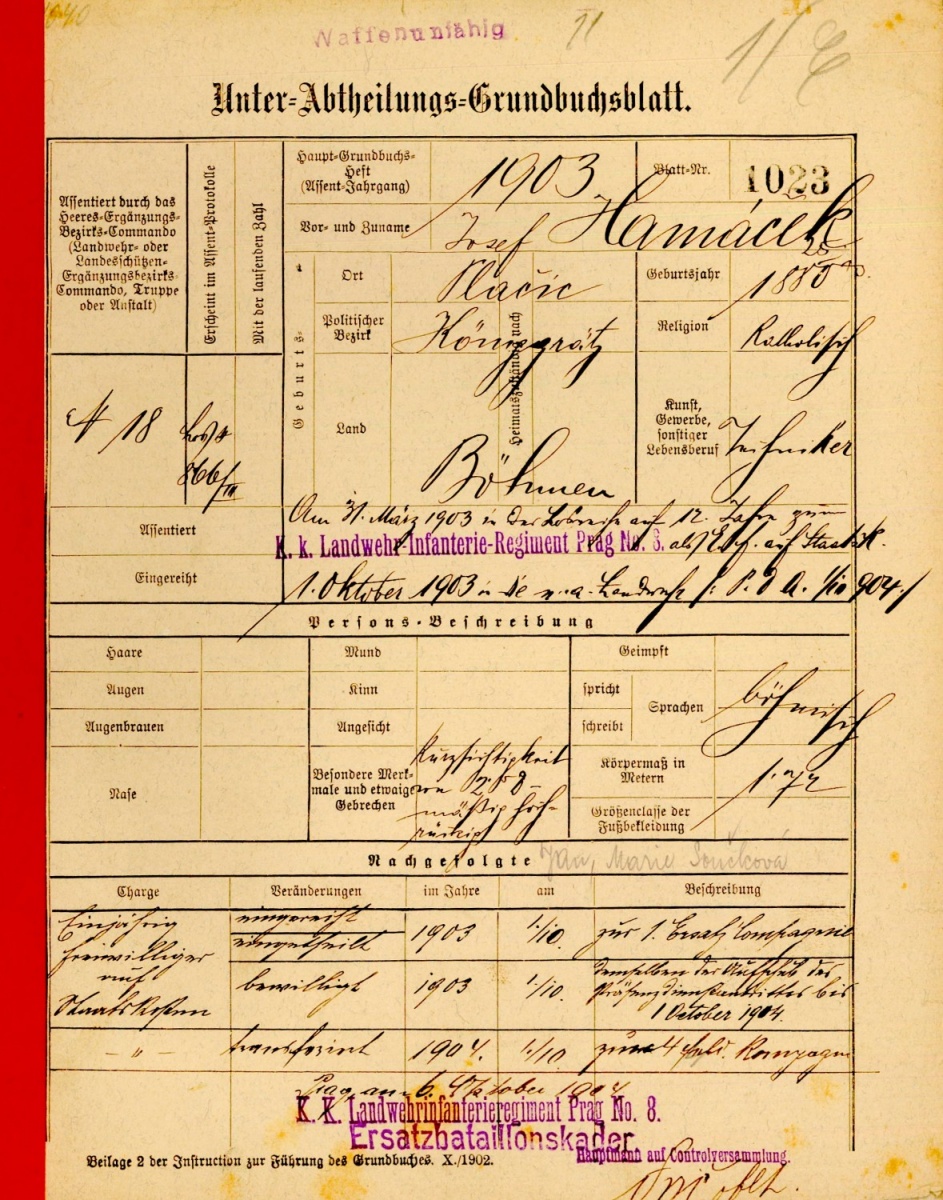 Waffenunfähig
II
Unter-Abtheilungs-Grundbuchsblatt.
Assentiert durch das Heeres-Ergänzungs-Bezirks-Commando (Landwehr- oder Landesschützen-Ergänzungsbezirks-Commando, Truppe oder Anstalt)
Erscheint im Assent-Protokolle
Mit der laufenden Zahl
Haupt-Grundbuchs-Heft (Assent-Jahrgang)
1903
Blatt-Nr.
1023
Vor- und Zuname
Josef Hamáček
Geburts-
Ort
Plačic
Geburtsjahr
188
Politischer Bezirk
Königgrätz
Heimatszuständig nach
Religion
Katholisch
Land
Böhmen
Kunst, Gewerbe, sonstiger Lebensberuf
Techniker
18
866/III
Assentiert
Am 31. März 1903 in der auf 12 Jahre zum
K. k. Landwehr-Infanterie-Regiment Prag No. 8. als auf
Eingereiht
1. Oktober 1903 in die
Persons-Beschreibung
Haare
Mund
Geimpft
Augen
Kinn
spricht
schreibt
Sprachen
böhmisch
Augenbrauen
Angesicht
Nase
Besondere Merkmale und etwaige Gebrechen
Kurzsichtigkeit
von
mäßig hoch-
rückig
Körpermaß in Metern
1.72
Größenclasse der Fußbekleidung
Nachgefolgte
Jan, Marie Součková
Charge
Veränderungen
im Jahre
am
Beschreibung
Einjährig
freiwilliger
auf
Staatskosten
eingereiht
eingetheilt
1903
1/10.
zur 1. Ersatz Compagnie
bewilligt
1903
1/10.
demselben der Aufschub des
Präsenzdienstantrittes bis
1 October 1904.
- " -
transferirt
1904.
1/10
4 Feld. Kompagnie
Prag, am 6. Oktober 1904
K. K. Landwehrinfanterieregiment Prag No. 8.
Ersatzbataillonskader
Hauptmann auf Controlversammlung.
Beilage 2 der Instruction zur Führung des Grundbuches. X./1902.